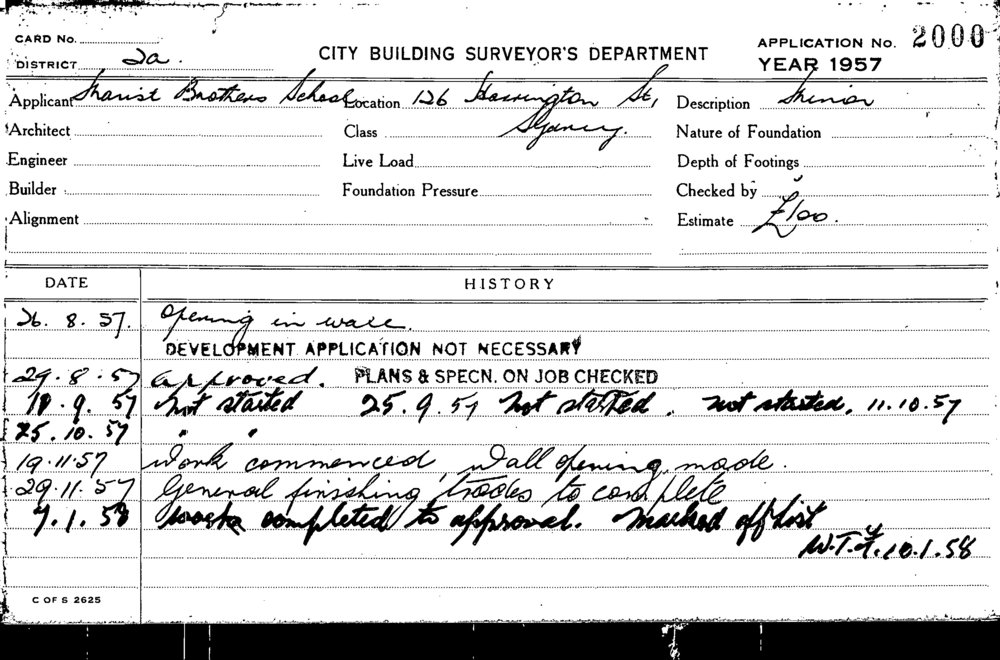 CARD No.
CITY BUILDING SURVEYOR'S DEPARTMENT
APPLICATION No. 2000
DISTRICT 2a.
YEAR 1957
Applicant Marist Brothers School Location 126 Harrington St, Description Minor
Architect Class Sydney. Nature of Foundation
Engineer Live Load Depth of Footings
Builder Foundation Pressure Checked by
Alignment Estimate £100.
DATE HISTORY
26. 8. 57. Opening in wall.
DEVELOPMENT APPLICATION NOT NECESSARY
29. 8. 57 approved. PLANS & SPECN. ON JOB CHECKED
18. 9. 57 Not started 25. 9. 57 Not started. not started, 11.10.57
25. 10. 57 " "
19.11.57 Work commenced, Wall opening made.
29.11.57 General finishing trades to complete
7.1.58 work completed to approval. Marked off List
10.1.58
C OF S 2625